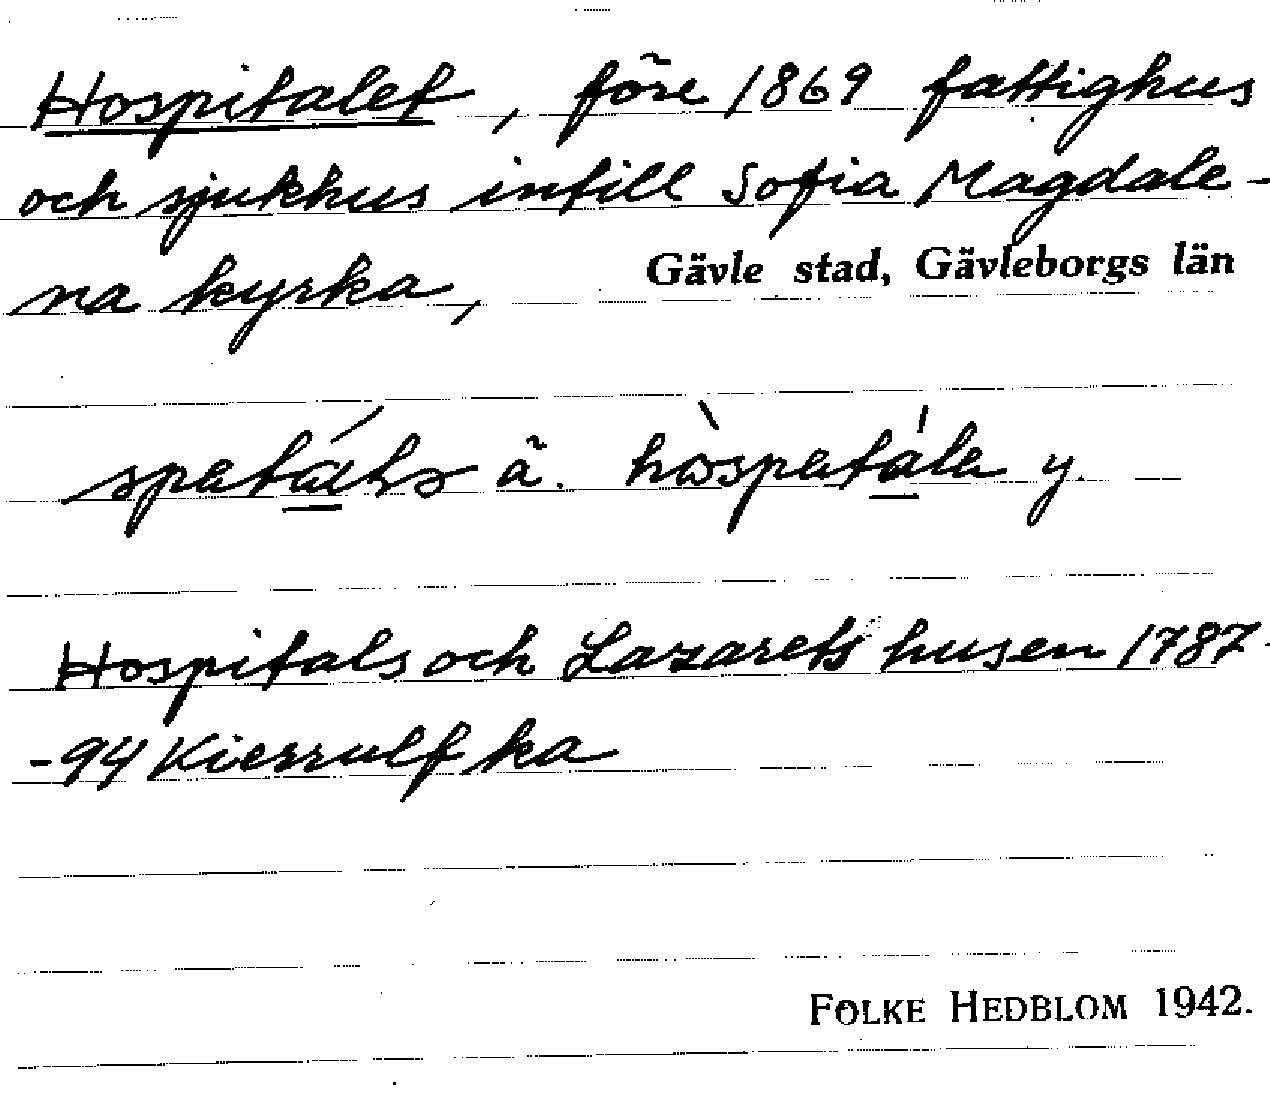 Hospitalet, före 1869 fattighus
och sjukhus intill Sofia Magdale-
na kyrka, Gävle stad, Gävleborgs län
ä. hòspatála y.
Hospitals och Lazarets husen 1787-
-94 Kierrulf ka
FOLKE HEDBLOM 1942.